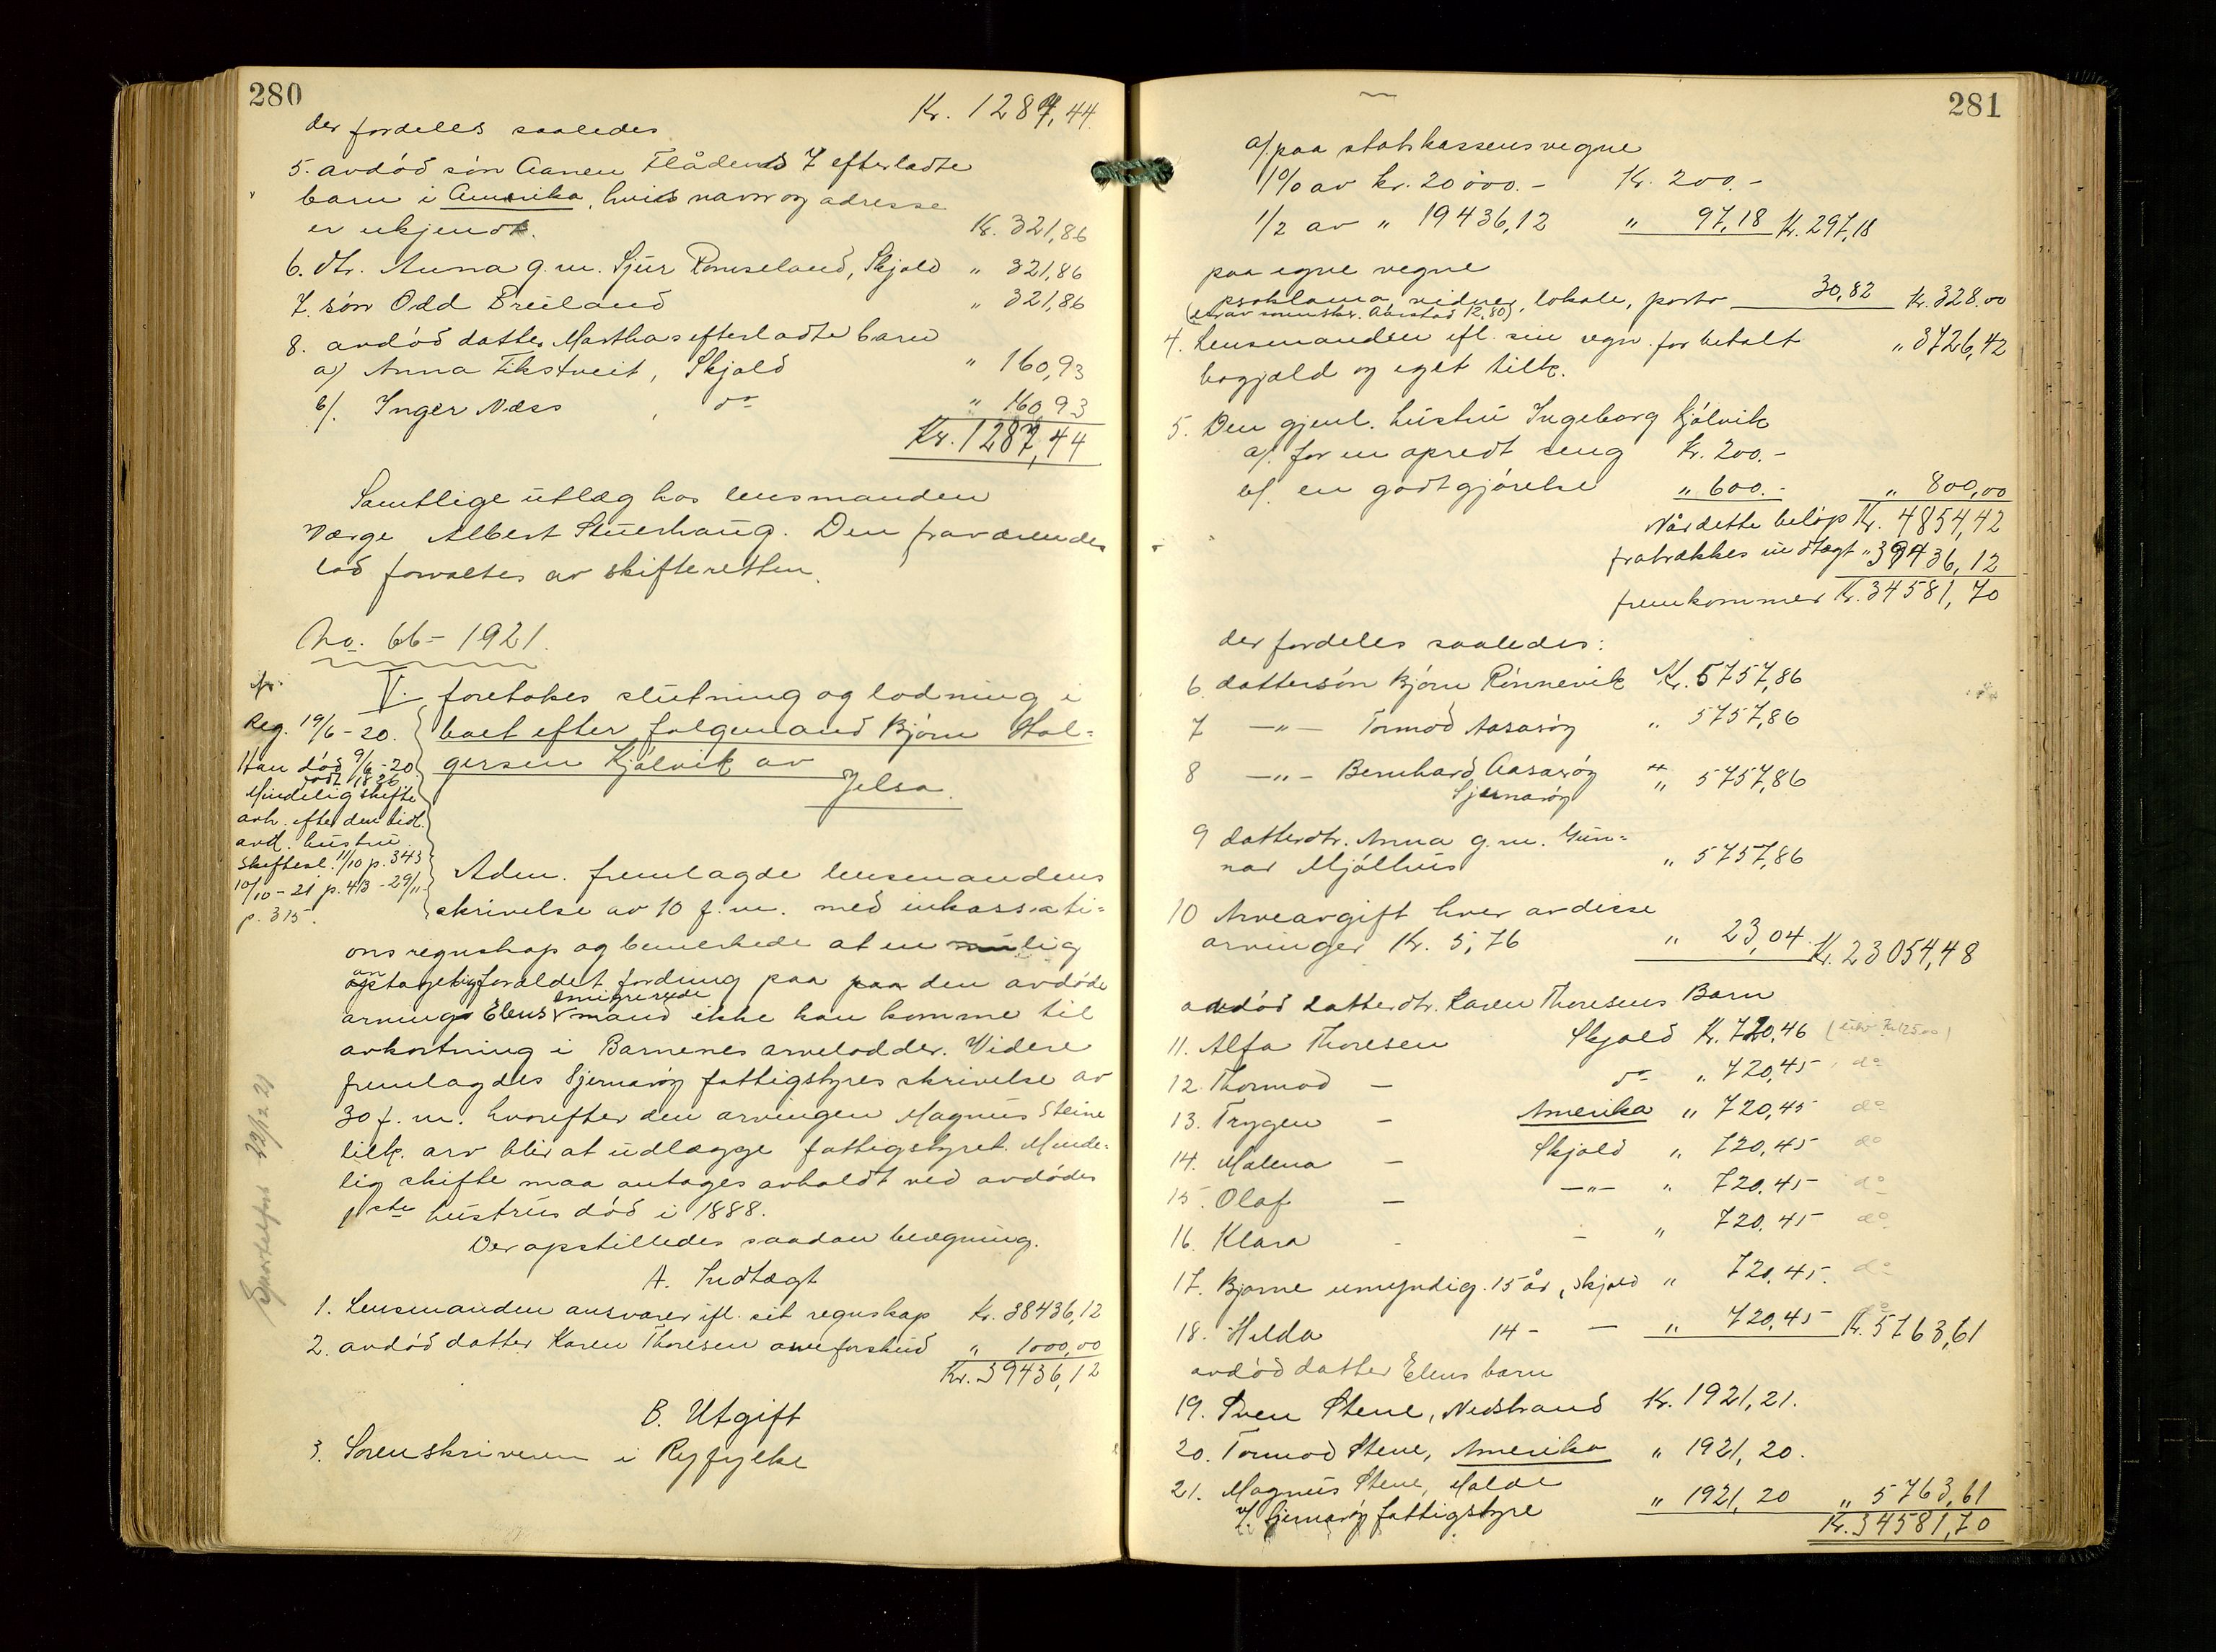 280
der fordeles saaledes Kr. 1287,44
5. avdöd sön Aanen Flådens 7 efterladte
barn i Amerika, hvis navn og adresse
er ukjendt. Kr. 321,86
6. dtr. Anna g. m. Sjur Romseland, Skjold " 321,86
7. sön Odd Breiland " 321,86
8. avdöd datter Marthas efterladte barn
a) Anna Eikstveit, Skjold " 160,93
b/. Inger Næss , do " 160,93
Kr. 1287,44
Samtlige utlæg hos lensmanden
Værge Albert Stuerhaug. Den fraværendes
lod forvaltes av skifteretten.
No. 66 - 1921.
V. foretokes slutning og lodning i
boet efter folgemand Björn Hol-
gersen Kjölvik av
Jelsa.
Reg. 19/6 - 20.
Han död 9/6 - 20
födt 1836
Mindelig skifte
avh. efter den tidl.
avd. hustru
Skiftesl. 11/10 p. 343
10/10 - 21 p. 43 - 29/11
p. 315.
Adm. fremlagde lensmandens
skrivelse av 10 f. m. med inkassati-
ons regnskap og bemerkede at en lig
antagelig forældet fordring paa paa den avdöde
arving Elens emigrerede mand ikke kan komme til
avkortning i Barnenes arvelodder. Videre
fremlagdes Sjernaröy fattigstyres skrivelse av
30 f. m. hvorefter den arvingen Magnus Steine
tilk. arv blir at udlægge fattigstyret. Minde-
lig skifte maa antages avholdt ved avdödes
1ste hustrus död i 1888.
Der opstilledes saadan beregning.
A. Indtægt
1. Lensmanden ansvarer ifl. sit regnskap Kr. 38436,12
2. avdöd datter Karen Thoresen arveforskud " 1000,00
Kr. 39436,12
B. Utgift
3. Sorenskriveren i Ryfylke
22/12 21
281
a/. paa statskassens vegne
1% av kr. 20000.- Kr. 200.-
1/2 av " 19436,12 " 97,18 Kr. 297,18
paa egne vegne
proklama, vidner, lokale, porto 30,82 Kr. 328.00
12,80)
4. Lensmanden ifl. sin regn. for betalt " 3726,42
bogjæld og eget tilk.
5. Den gjenl. hustru Ingeborg Kjölvik
a/. for en opredt seng Kr. 200.-
b/. en godtgjörelse " 600.- " 800,00
Når dette belöp Kr. 4854,42
fratrækkes indtægt " 39436,12
fremkommer Kr. 34581,70
der fordeles saaledes:
6. dattersön Björn Rönnevik Kr. 5757,86
7 —"— Tormod Aasaröy " 5757,86
8 —"— Bernhard Aasaröy " 5757,86
Sjernaröy
9 datterdtr. Anna g. m. Gun-
nar Mjölhus " 5757,86
10 Arveavgift hver av disse
arvinger Kr. 5,76 " 23,04 Kr. 23054,48
avdöd datterdtr. Karen Thoresens Barn
11. Alfa Thoresen Skjold Kr. 720,46
12. Thormod — do " 720,45 do
13. Trygen — Amerika " 720,45 do
14. Malena — Skjold " 720,45 do
15. Olaf — —"— " 720,45 do
16. Klara - - " 720,45 do
17. Bjarne umyndig. 15 år, Skjold " 720,45. do
18. Hilda 14 - — " 720,45 Kr. 5763,61
avdöd datter Elens barn
19. Sven Stene, Nedstrand Kr. 1921,21.
20. Tormod Stene, Amerika " 1921,20.
21. Magnus Stene, Malde
v/. Sjernaröy fattigstyre " 1921,20 " 5763,61
Kr. 34581,70